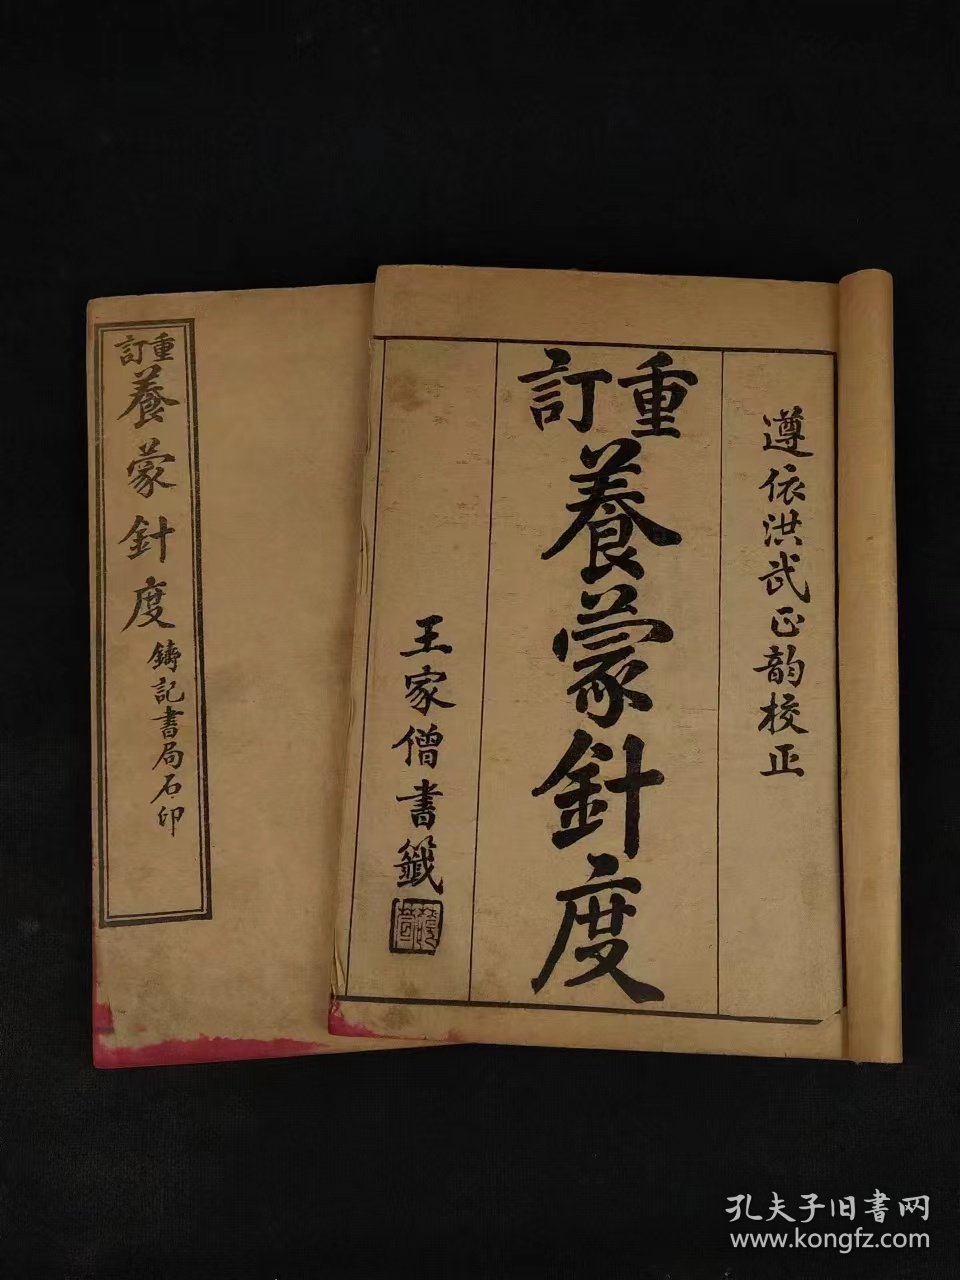 重訂
養蒙針度
鑄記書局石印
遵依洪武正韵校正
重訂
養蒙針度
王家僧書籤
孔夫子旧書网
www.kongfz.com